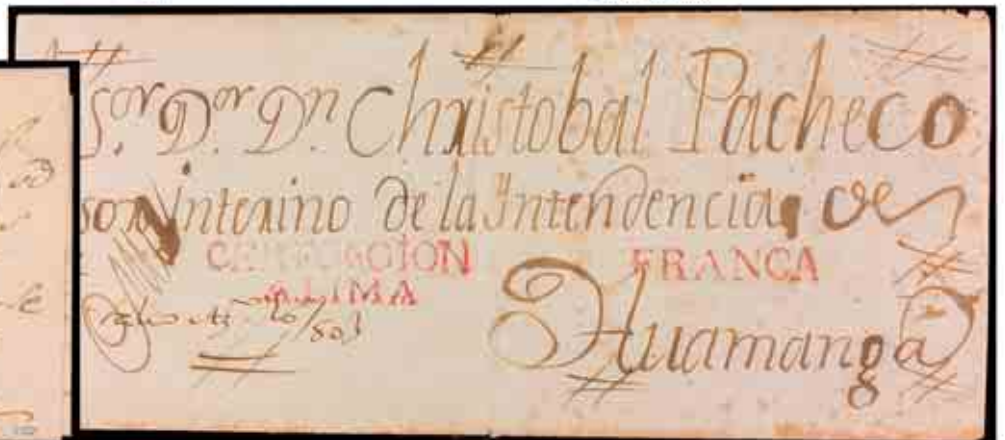 S.or D.or D.n Christobal Pacheco
sor Interino de la Intendencia, de
CERTIFICACION FRANCA
LIMA
Huamanga